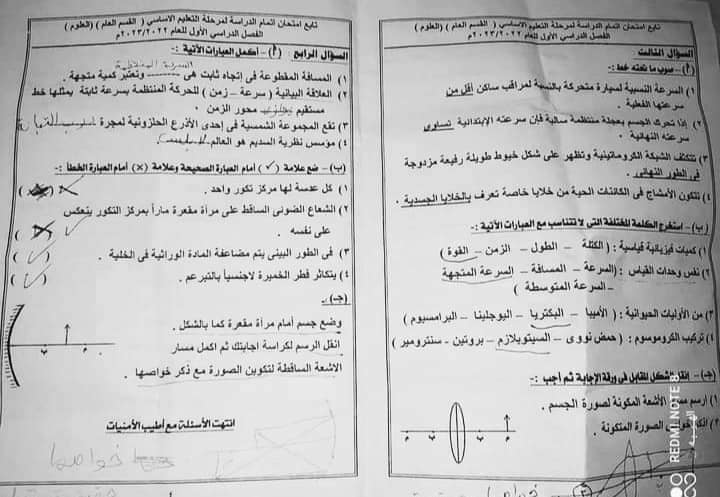 تابع امتحان اتمام الدراسة لمرحلة التعليم الاساسي ( القسم العام ) (العلوم)
الفصل الدراسي الأول للعام ٢٠٢٣/٢٠٢٢م
السؤال الثالث
(أ)- صوب ما تحته خط :-
١) السرعة النسبية لسيارة متحركة بالنسبة لمراقب ساكن أقل من
سرعتها الفعلية
٢) إذا تحرك الجسم بعجلة منتظمة سالبة فإن سرعته الإبتدائية تساوى
سرعته النهائية .
٣) تتكثف الشبكة الكروماتينية وتظهر على شكل خيوط طويلة رفيعة مزدوجة
فى الطور النهائى .
٤) تتكون الأمشاج فى الكائنات الحية من خلايا خاصة تعرف بالخلايا الجسدية .
(ب)- استخرج الكلمة المختلفة التي لا تتناسب مع العبارات الآتية :-
١) كميات فيزيائية قياسية : (الكتلة – الطول – الزمن – القوة )
٢) نفس وحدات القياس : (السرعة – المسافة – السرعة المتجهة
– السرعة المتوسطة )
٣) من الأوليات الحيوانية : ( الأميبا – البكتريا – اليوجلينا – البرامسيوم )
٤) تركيب الكروموسوم : ( حمض نووى – السيتوبلازم – بروتين - سنترومير )
(جـ)- إنقل الشكل المقابل فى ورقة الإجابة ثم أجب :-
١) ارسم مسار الأشعة المكونة لصورة الجسم .
٢) اذكر خواص الصورة المتكونة .
م ب ب م
خواصها
REDMI NOTE 8
تابع امتحان اتمام الدراسة لمرحلة التعليم الاساسي ( القسم العام ) (العلوم)
الفصل الدراسي الأول للعام ٢٠٢٣/٢٠٢٢م
السؤال الرابع (أ)- أكمل العبارات الآتية :-
١) المسافة المقطوعة فى إتجاه ثابت هى ------- وتعتبر كمية متجهة .
٢) العلاقة البيانية ( سرعة – زمن ) للحركة المنتظمة بسرعة ثابتة يمثلها خط
مستقيم محور الزمن .
٣) تقع المجموعة الشمسية فى إحدى الأذرع الحلزونية لمجرة
٤) مؤسس نظرية السديم هو العالم
(ب)- ضع علامة (✓) أمام العبارة الصحيحة وعلامة (×) أمام العبارة الخطأ :-
١) كل عدسة لها مركز تكور واحد .
٢) الشعاع الضوئى الساقط على مرآة مقعرة ماراً بمركز التكور ينعكس
على نفسه .
٣) فى الطور البينى يتم مضاعفة المادة الوراثية فى الخلية .
٤) يتكاثر فطر الخميرة لاجنسياً بالتبرعم .
(جـ)-
وضع جسم أمام مرآة مقعرة كما بالشكل .
انقل الرسم لكراسة اجابتك ثم اكمل مسار
الاشعة الساقطة لتكوين الصورة مع ذكر خواصها .
ب م
انتهت الأسئلة مع أطيب الأمنيات
خواصها